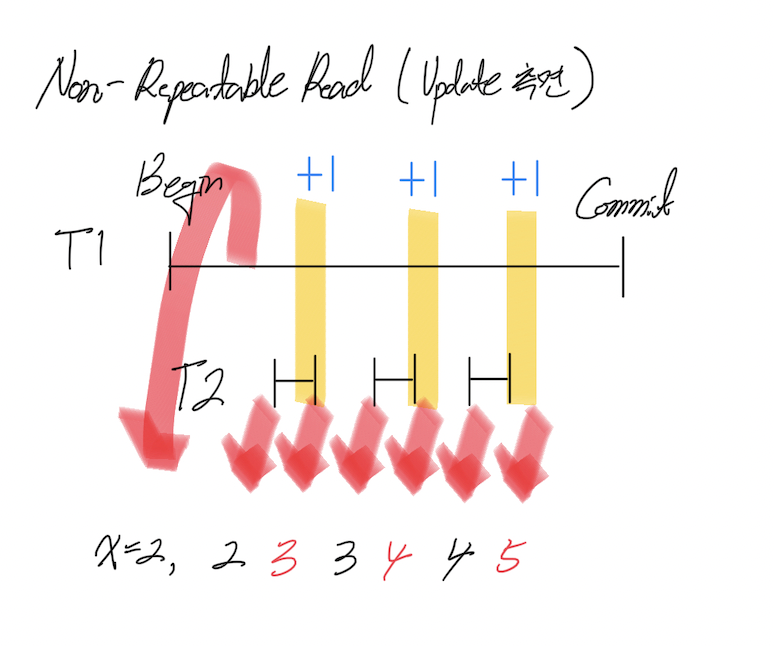 Non-Repeatable Read (Update 측면)
+1 +1 +1
Begin
Commit
T1
T2
x=2, 2 3 3 4 4 5